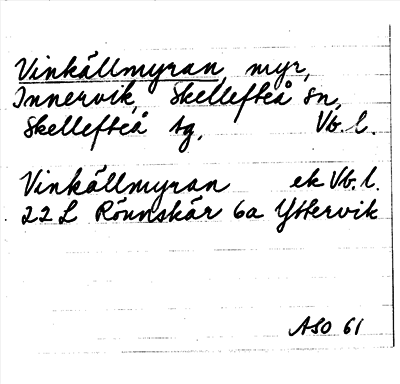 Vinkällmyran, myr,
Innervik, Skellefteå sn,
Skellefteå tg, Vb. l.
Vinkällmyran ek Vb. l.
22 L Rönnskär 6a Yttervik
ASO 61